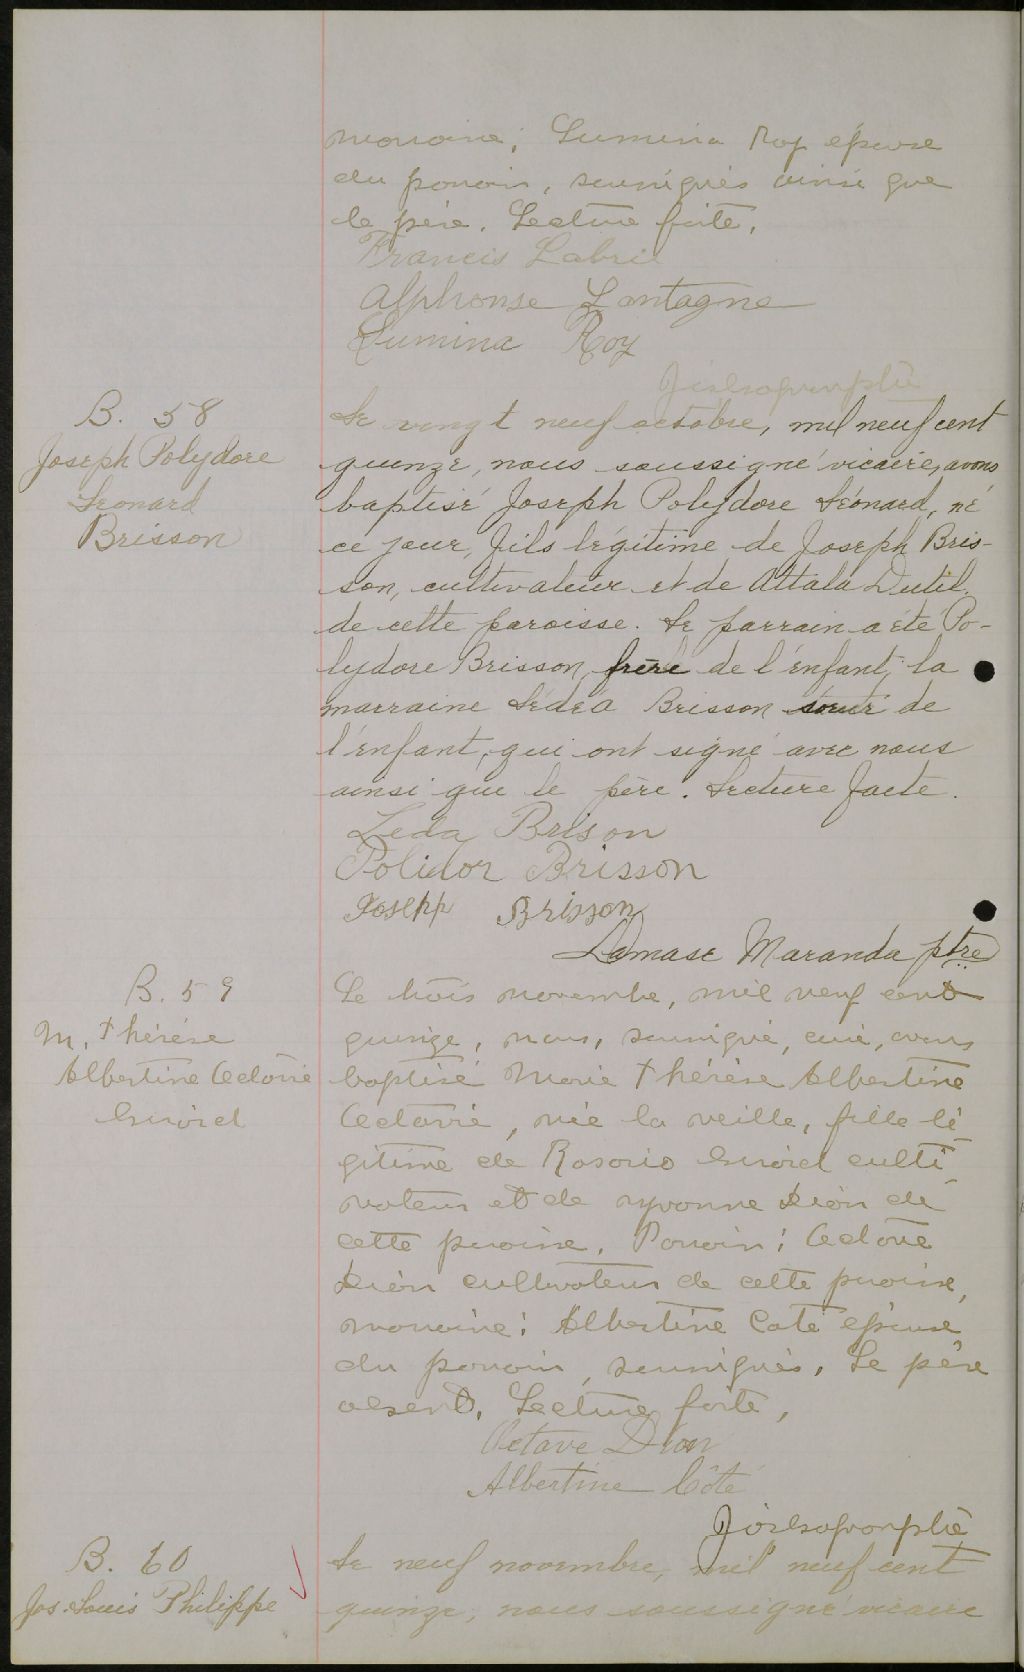 marraine; Lumina Roy épouse
du parrain, soussignés ainsi que
le père. Lecture faite.
Francis Labrie
Alphonse Lantagne
Lumina Roy
B. 58
Joseph Polydore
Léonard
Brisson
Le vingt neuf octobre, mil neuf cent
quinze, nous soussigné vicaire, avons
baptisé Joseph Polydore Léonard, né
ce jour, fils légitime de Joseph Bris-
son, cultivateur et de Attala Dutil
de cette paroisse. Le parrain a été Po-
lydore Brisson, frère de l'enfant, la
marraine Lédéa Brisson sœur de
l'enfant, qui ont signé avec nous
ainsi que le père. Lecture faite.
Leda Brison
Polidor Brisson
Josepp Brisson
Damase Maranda ptre
B. 59
M. Thérèse
Albertine Octavie
Le trois novembre, mil neuf cent
quinze, nous, soussigné, curé, avons
baptisé Marie Thérèse Albertine
Octavie, née la veille, fille lé-
gitime de Rosario culti-
vateur et de Yvonne Dion de
cette paroisse. Parrain: Octave
Dion cultivateur de cette paroisse,
marraine: Albertine Coté épouse
du parrain, soussignés. Le père
absent. Lecture faite,
Octave Dion
Albertine Côté
B. 60
Jos. Louis Philippe
Le neuf novembre, mil neuf cent
quinze, nous soussigné vicaire